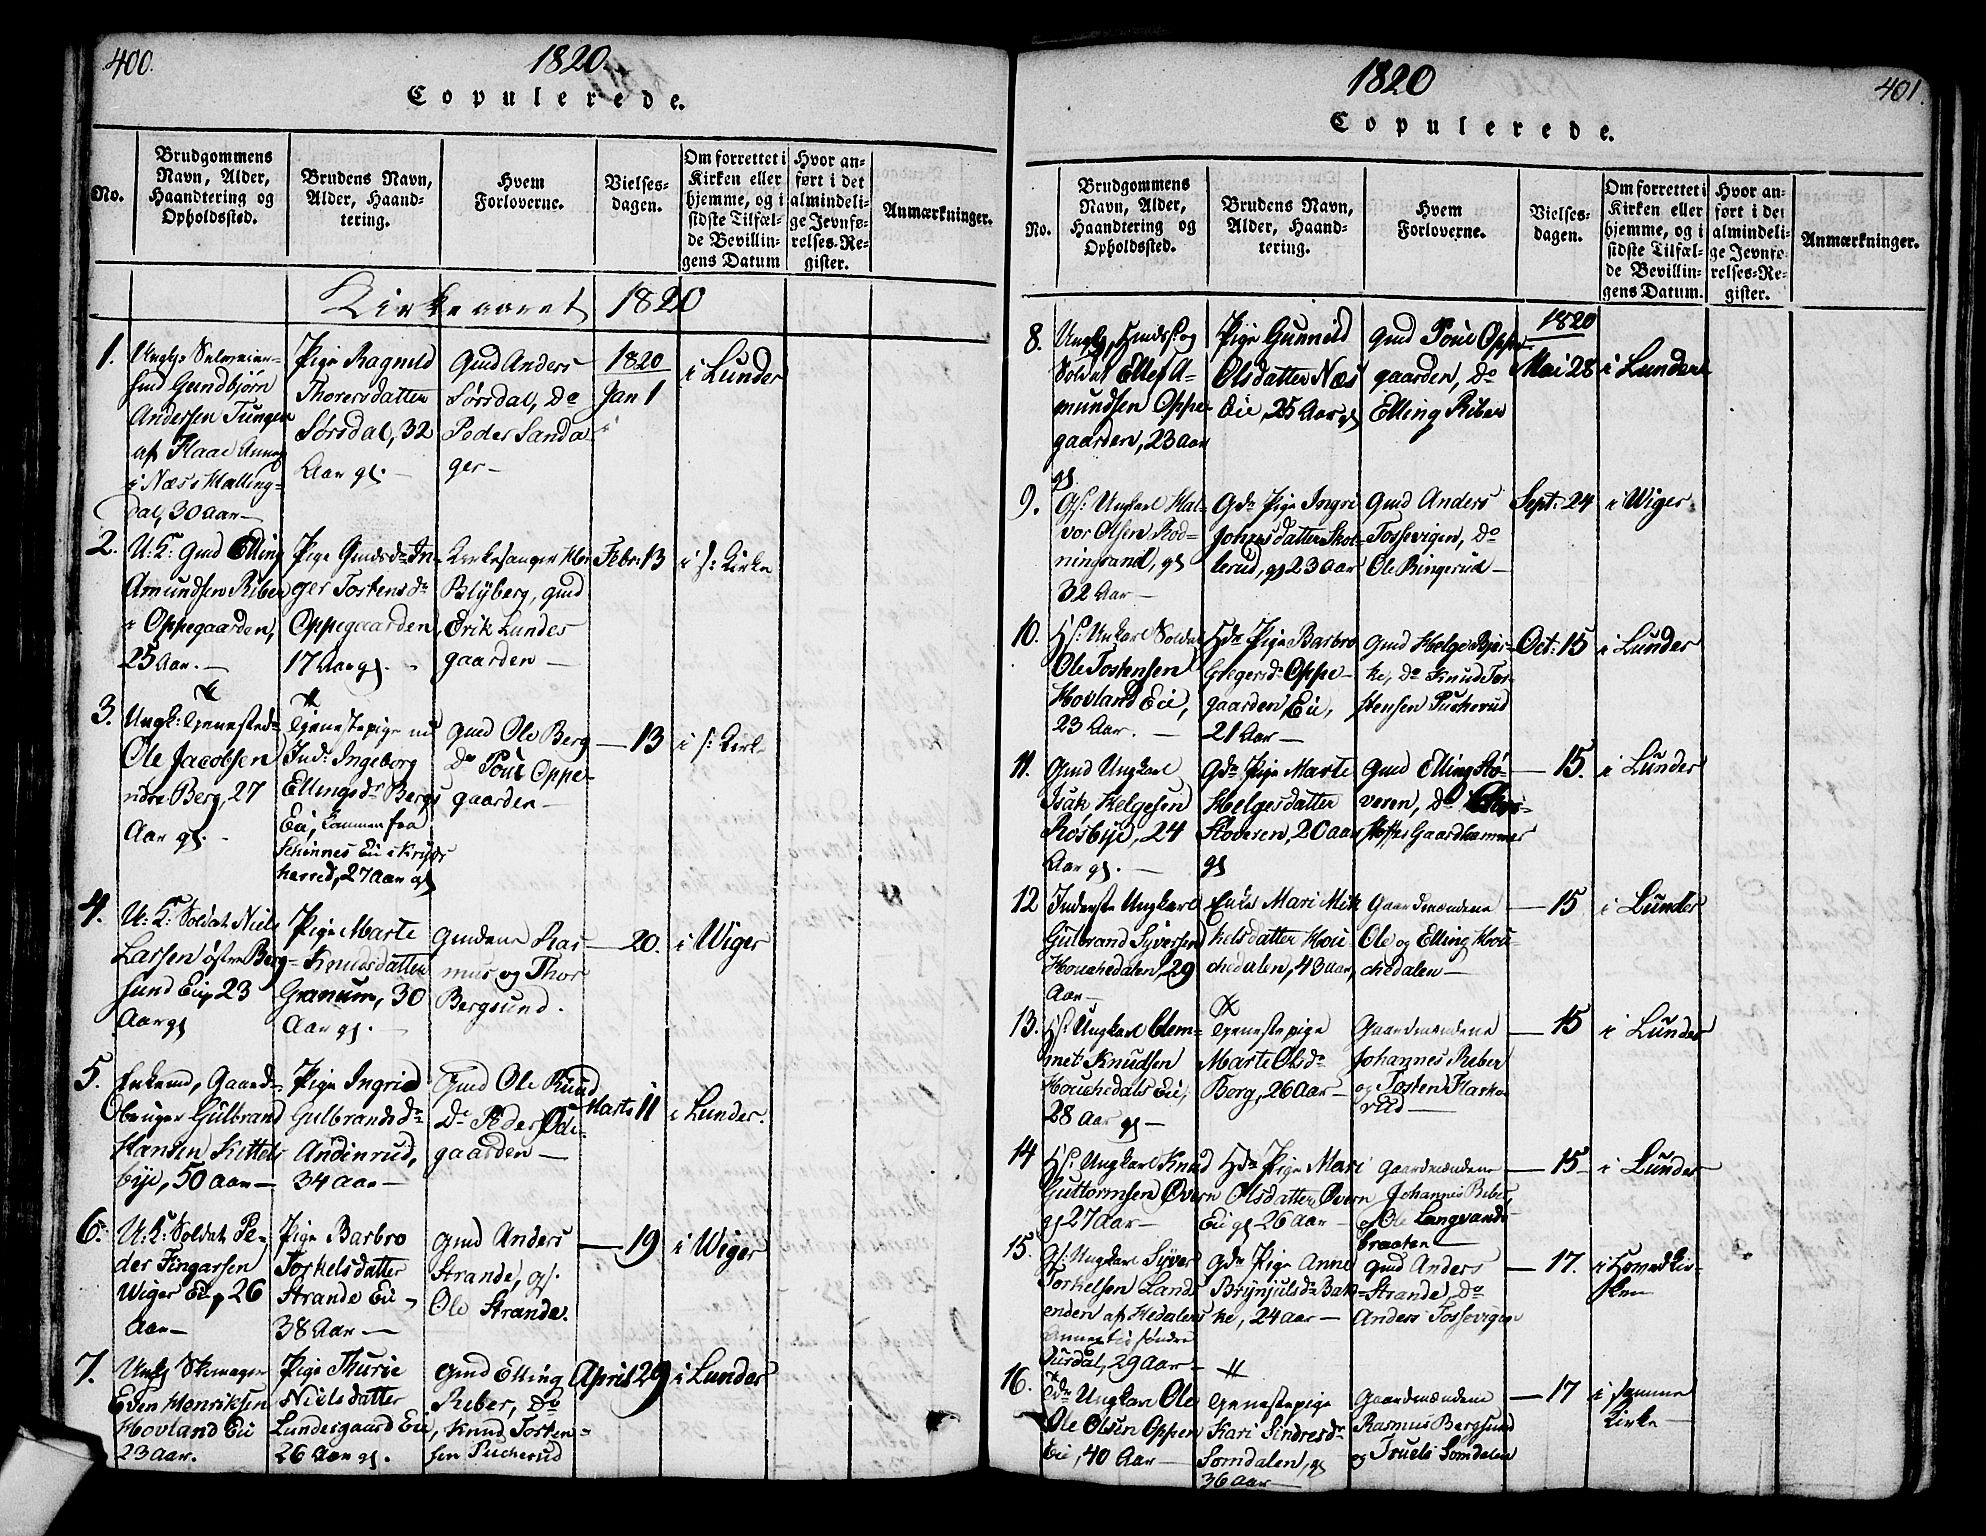 400.
1820.
Copulerede.
No.
Brudgommens Navn, Alder, Haandtering og Opholdssted.
Brudens Navn, Alder, Haandtering.
Hvem Forloverne.
Vielsesdagen.
Om forrettet i Kirken eller hjemme, og i sidste Tilfælde Bevillingens Datum
Hvor anført i det almindelige Jevnførelses-Register.
Anmærkninger.
Kirkeaaret 1820
1.
Gundbjørn
Andersen Tungen
af Flaae Annex
i Næs's Halling-
dal, 30 aar
Pige Ragnild
Thoresdatter
Sørsdal, 32
Aar gl.
Gmd Anders
Sørsdal, Do
Peder Sanda
ger
1820
Jan 1
i Lunder
2.
U: K: Gmd Elling
Amundsen Riber
i Oppegaarden,
25 Aar.
Pige Gmdsdr In-
ger Tostensdr
Oppegaarden,
17 Aar gl.
Kirkesanger Hr
Blyberg, gmd
Erik Lundes
gaarden
Febr: 13
i s: Kirke
3.
Ungk: Tjenested:
Ole Jacobsen
ndre Berg, 27
Aar gl.
Tjenestepige nu
Ind: Ingeborg
Ellingsdr Bergs
Eie, kommen fra
Eie i Kryds
herred, 27 aar gl
Gmd Ole Berg
Do Poul Oppe-
gaarden
13
i s: Kirke
4.
U: K: Soldat Niels
Larsen østre Berg-
sund Eie, 23
Aar gl
Pige Marte
Knudsdatter
Granum, 30
Aar gl.
Gmdene Ras
mus og Thor
Bergsund.
20.
i Wiger
5.
Enkemd, Gaard-
bruger Gulbrand
Hansen Kittels
bye, 50 aar
Pige Ingrid
Gulbrandsdr
Andinrud,
34 aar
Gmd Ole Ruud
Do Peder
gaarden
Marts 11
i Lunder.
6.
U: K: Soldat Pe-
der Fingarsen
Wiger Eie, 26
Aar
Pige Barbro
Torkelsdatter
Strande Eie
38 Aar
Gmd Anders
Strande, gs:
Ole Strande.
19
i Wiger
7.
Ungk Skomager
Even Henriksen
Hovland Eie
23 aar.
Pige Thurie
Nielsdatter
Lundesgaard Eie,
26 Aar gl.
Gmd Elling
Riber, Do
Knud Tosten-
sen Pucherud
April 29
i Lunder
401.
1820
Copulerede.
No.
Brudgommens Navn, Alder, Haandtering og Opholdssted.
Brudens Navn, Alder, Haandtering.
Hvem Forloverne.
Vielsesdagen.
Om forrettet i Kirken eller hjemme, og i sidste Tilfælde Bevillingens Datum.
Hvor anført i det almindelige Jevnførelses-Register.
Anmærkninger.
8.
Ungk, Gmds: og
Soldat Ellef A-
mundsen Oppe-
gaarden, 23 aar
gl
Pige Gunnild
Olsdatter Næs
Eie, 25 Aar gl
Gmd Poul Oppe-
gaarden, Do
Elling Riber
1820
Mai 28
i Lunder
9.
Gs: Ungkarl Hal-
vor Olsen Rod-
ningsand, gl
32 Aar
Gdr Pige Ingri
Johnsdatter Skol-
lerud, gl 23 aar
Gmd Anders
Tossevigen, Do
Ole Ringerud
Sept: 24
i Wiger
10.
Hs: Ungkarl Soldat
Ole Tostensen
Hovland Eie,
23 Aar.
Hdr Pige Barbro
Holgersdr Oppe-
gaarden Eie,
21 Aar
Gmd Helge Bjør-
ke, do Knud Tor-
stensen Puckerud
Oct: 15
i Lunder
11.
Gmd Ungkarl
Isak Helgesen
Røsbye, 24
Aar gl.
Gdr Pige Marte
Helgesdatter
Stoveren, 20 aar
gl
Gmd Elling Stø-
veren, do Chri-
stoffer Gaardhammer
15.
i Lunder
12
Inderste Ungkarl
Gulbrand Syversen
Houchedalen, 29
Aar
Enke Mari Mik
kelsdatter Hou
chedalen, 43 aar,
Gaardmændene
Ole og Elling Hou-
chedalen
15
i Lunder
13.
Hs: Ungkarl Clem-
met Knudsen
Houchedals Eie,
28 Aar gl
Tjenestepige
Marte Olsdr
Berg, 26 aar
Gaardmændene
Johannes Reber
og Tosten Flaske
rud
15
i Lunder
14
Hs: Ungkarl Knud
Guttormsen Øvern
gl 27 aar
Hdr Pige Mari
Olsdatter Øvern
Eie gl 26 aar
Gaardmændene
Johannis Riber,
og Ole Langvands
braaten
15
i Lunder
15.
Gs: Ungkarl Syver
Torkelsen Lands
enden af Hedalens
Annex til søndre
Aurdal, 29 Aar
Gdr Pige Anne
Brynjulsdr Bak-
ke, 24 aar
Gmd Anders
Strande, Do
Anders Tossevigen
17.
i Hovedkir-
ken
16.
Ungkarl Ole
Ole Olsen Oppen
Eie, 40 Aar
Tjenestepige
Kari Sindresdr
Somdalen, gl
36 aar
Gaardmændene
Rasmus Bergsund
og Truels Somdalen
17
i samme
Kirke